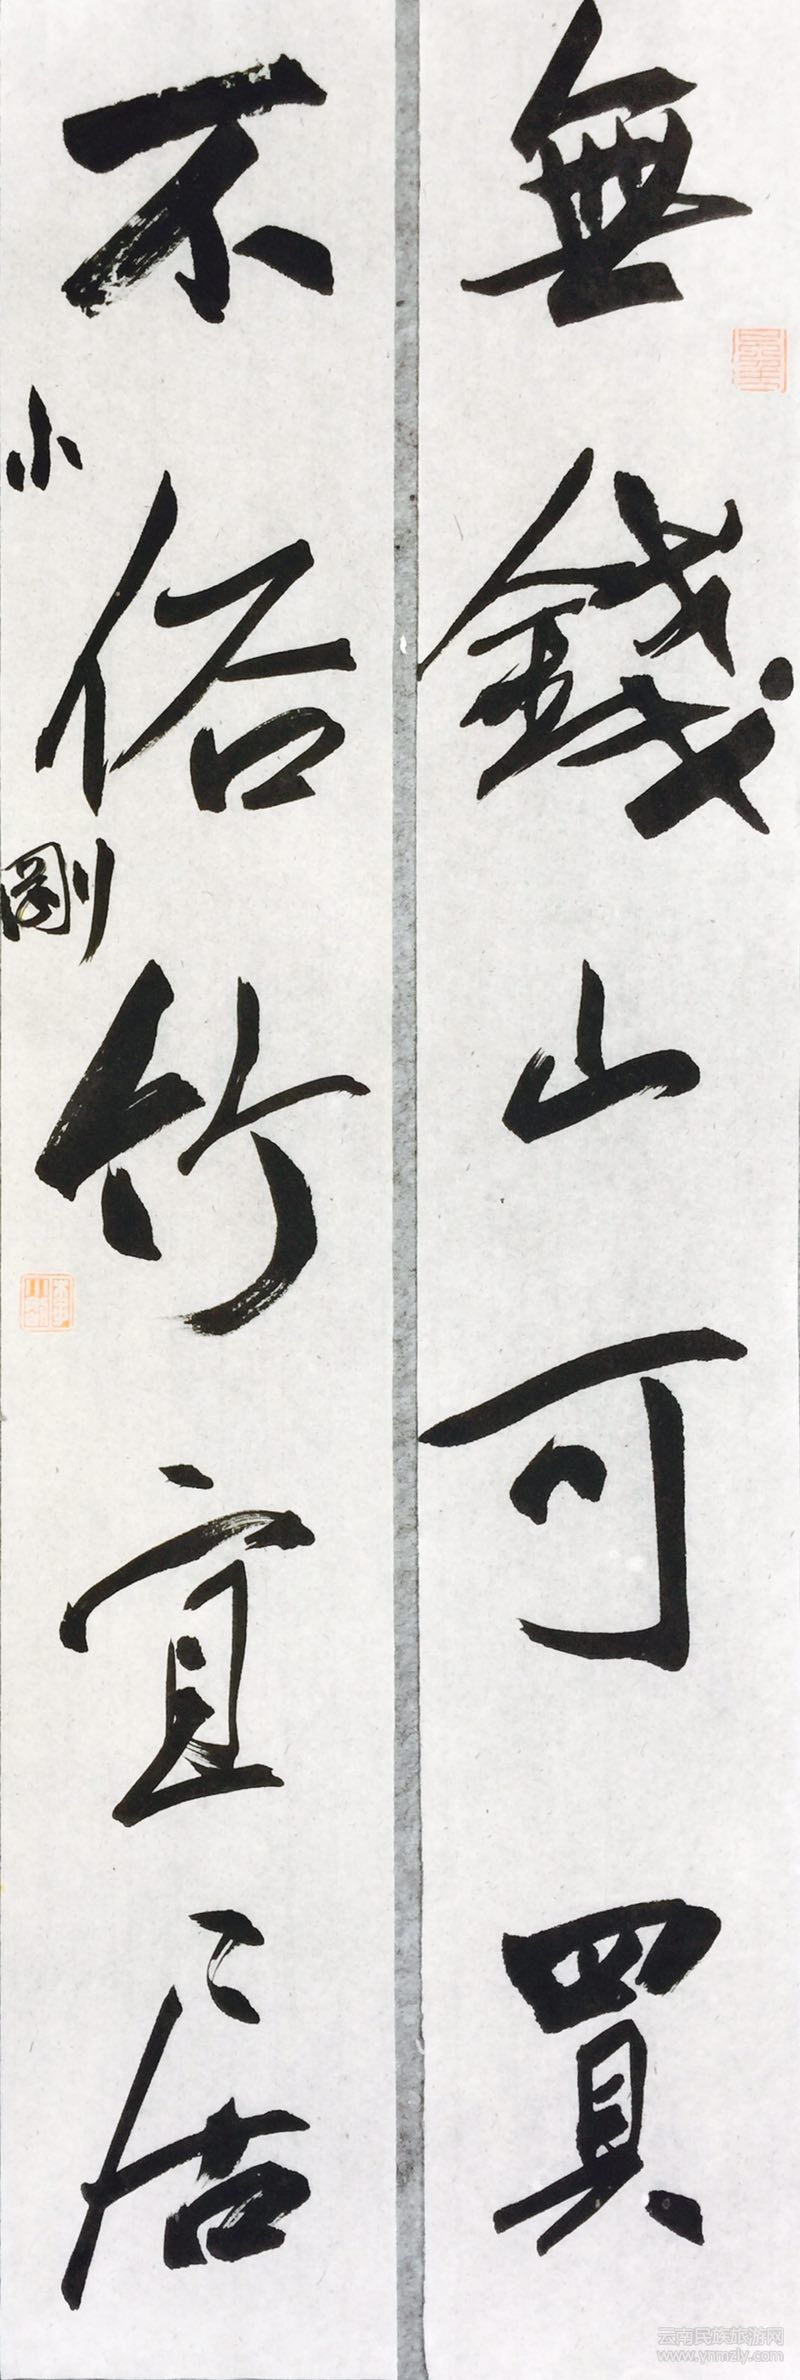 無錢山可買
不俗竹宜居
小剛
云南民族旅游网
www.ynmzly.com